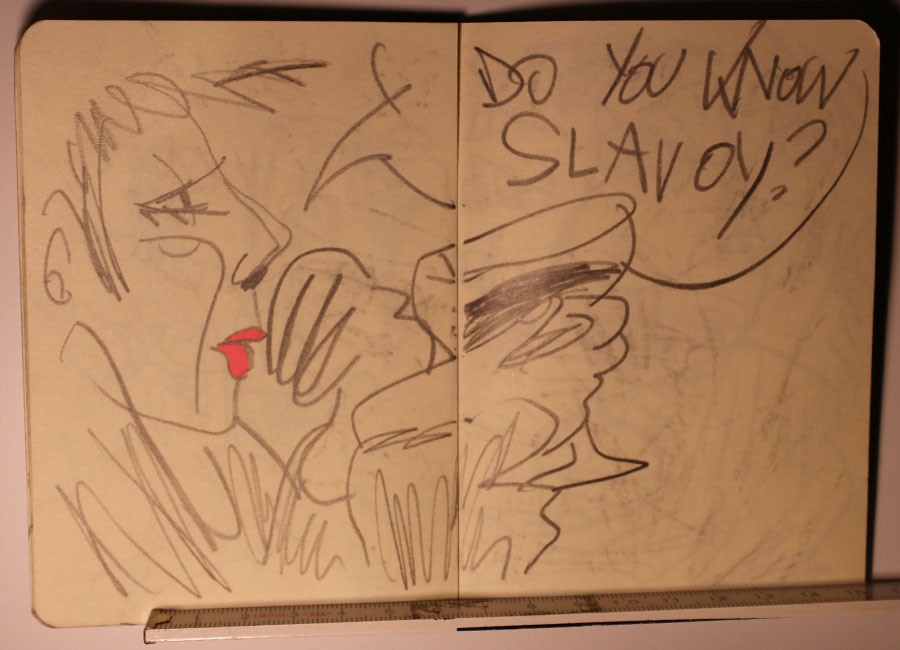 DO YOU KNOW
SLAVOY?